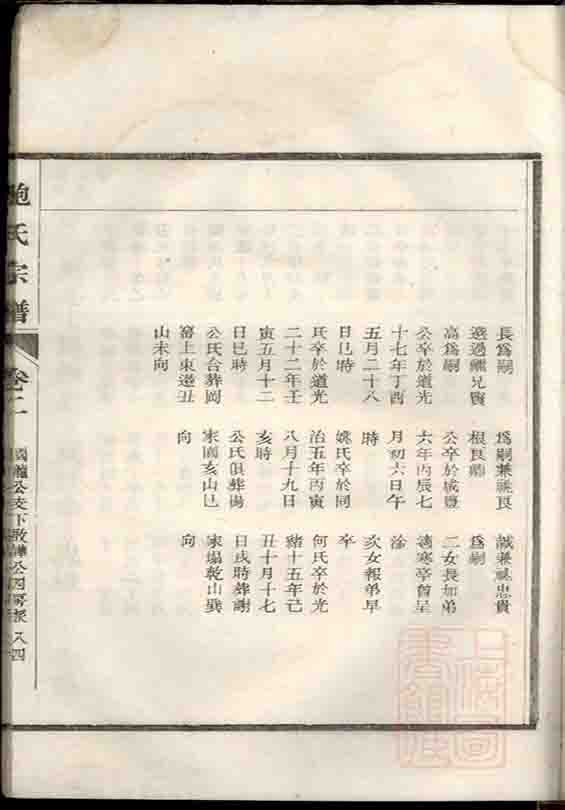 長為嗣
遴過繼兄寶
高為嗣
公卒於道光
十七年丁酉
五月二十八
日巳時
氏卒於道光
二十二年壬
寅五月十二
日巳時
公氏合葬岡
窰上東邊丑
山未向
為嗣兼祧良
根良鼎
公卒於咸豐
六年丙辰七
月初六日午
時
姚氏卒於同
治五年丙寅
八月十九日
亥時
公氏俱葬湯
家園亥山巳
向
誠兼祧忠貴
為嗣
二女長如弟
適寒亭曾呈
淦
次女報弟早
卒
何氏卒於光
緒十五年己
丑十月十七
日戌時葬謝
家塌乾山巽
向
鮑氏宗譜
卷二
公支下
公四房派 八四
上海圖書館藏